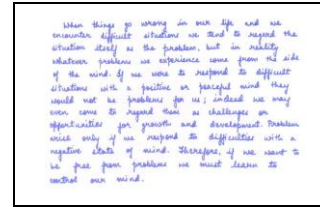 When things go wrong in our life and we
encounter difficult situations we tend to regard the
situation itself as the problem, but in reality
whatever problems we experience come from the side
of the mind. If we were to respond to difficult
situations with a positive or peaceful mind they
would not be problems for us; indeed we may
even come to regard them as challenges or
opportunities for growth and development. Problems
arise only if we respond to difficulties with a
negative state of mind. Therefore, if we want to
be free from problems we must learn to
control our mind.